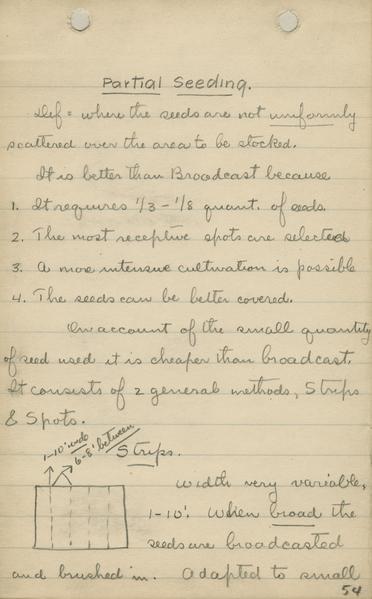 Partial Seeding.
Def = where the seeds are not uniformly
scattered over the area to be stocked.
It is better than Broadcast because
1. It requires 1/3 - 1/8 quant. of seeds.
2. The most receptive spots are selected
3. A more intensive cultivation is possible
4. The seeds can be better covered.
On account of the small quantity
of seed used it is cheaper than broadcast.
It consists of 2 general methods, Strips
& Spots.
1-10' wide
6-8' between
Strips.
Width very variable,
1-10'. When broad the
seeds are broadcasted
and brushed in. Adapted to small
54